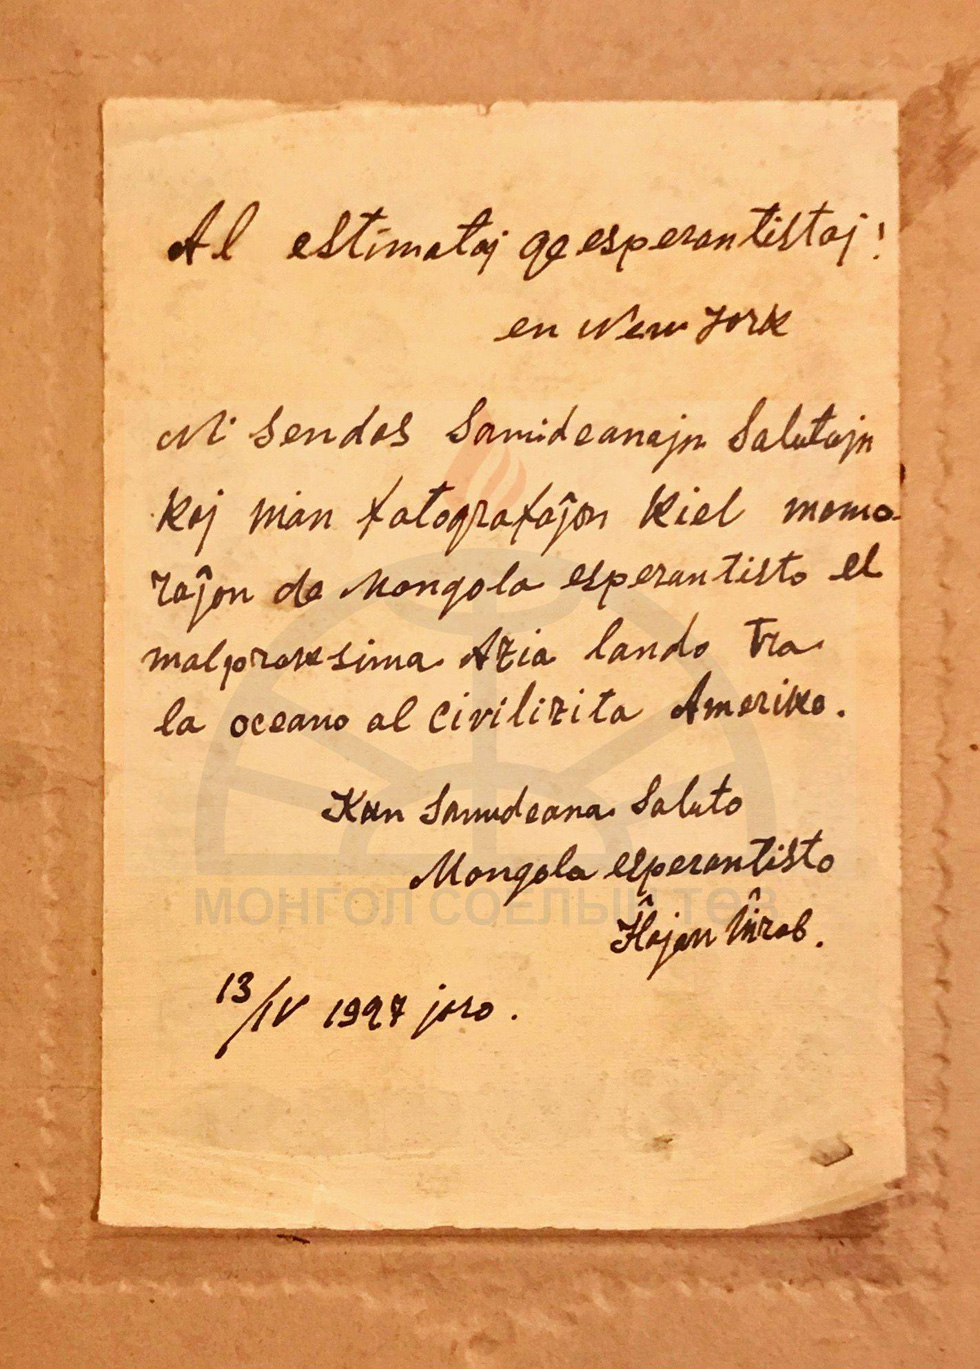 Al estimataj geesperantistoj!
en New Jork
Mi sendas Samideanajn Salutajn
Kaj mian fatografaĵon Kiel memo-
raĵon de Mongola esperantisto el
malproksima Azia lando tra
la oceano al civilizita Ameriko.
Kun Samideana Saluto
Mongola esperantisto
13/IV 1927 jaro.
МОНГОЛ СОЁЛЫН ТӨВ